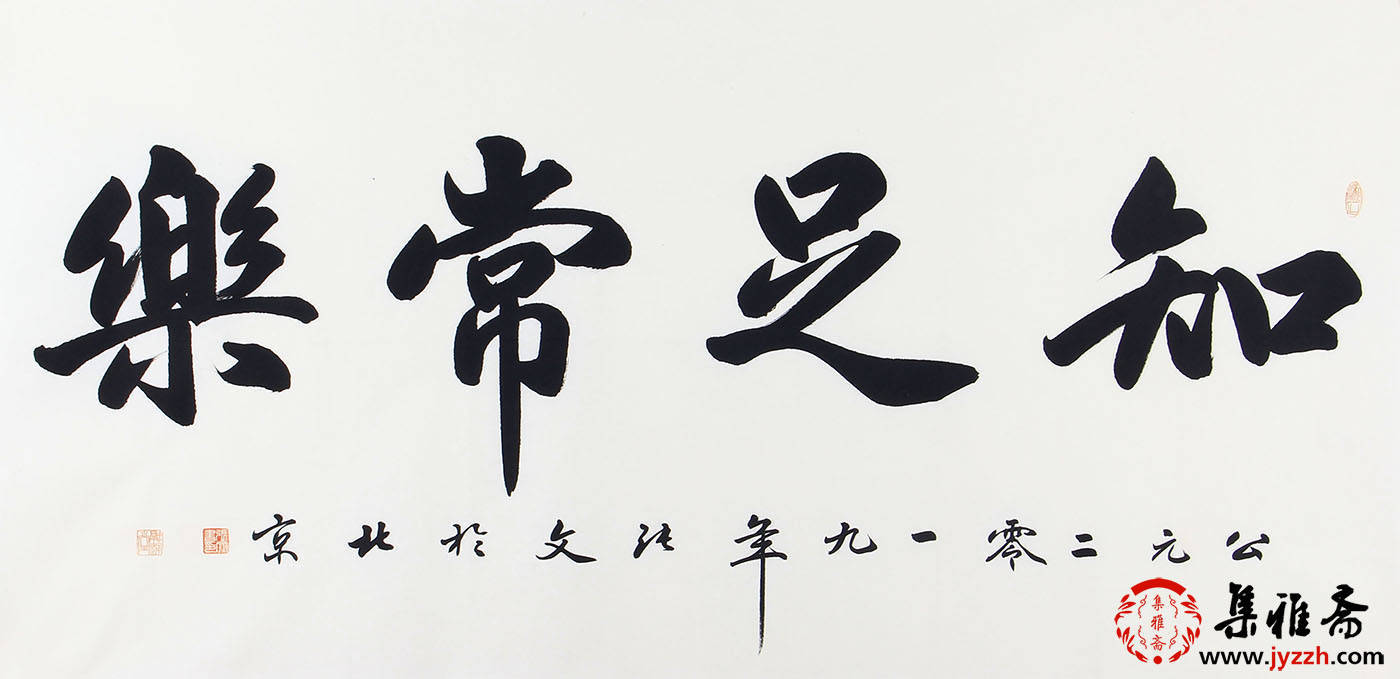 知足常樂
公元二零一九年張文於北京
集雅斋
集雅斋
www.jyzzh.com